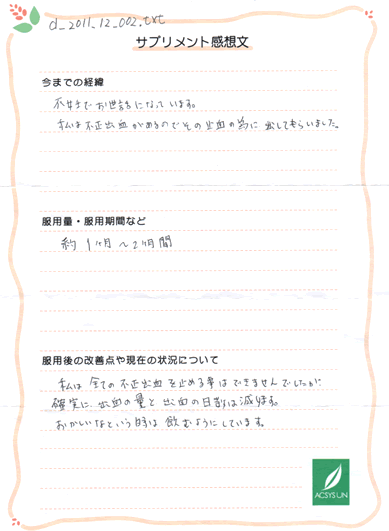 d_2011_12_002.txt
サプリメント感想文
今までの経緯
不妊でお世話になっています。
私は不正出血があるのでその止血の為に出してもらいました。
服用量・服用期間など
約1ヶ月〜2ヶ月間
服用後の改善点や現在の状況について
私は全ての不正出血を止める事はできませんでしたが
確実に出血の量と出血の日数は減ります。
おかしいなという時は飲むようにしています。
ACSYSUN